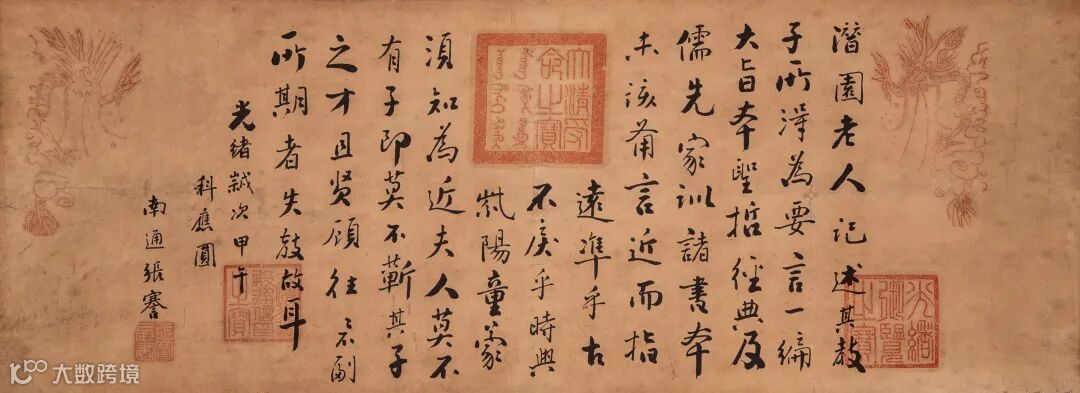 潛園老人記述其教
子所澤為要言一編
大旨本聖哲經典及
儒先家訓諸書本
末該備言近而指
遠準乎古
不戾乎時與
紫陽童蒙
須知為近夫人莫不
有子即莫不蘄其子
之才且賢顧往不副
所期者失教故耳
光緒歲次甲午
科應圓
南通張謇
大清受命之寶
光緒御覽之寶
大数跨境